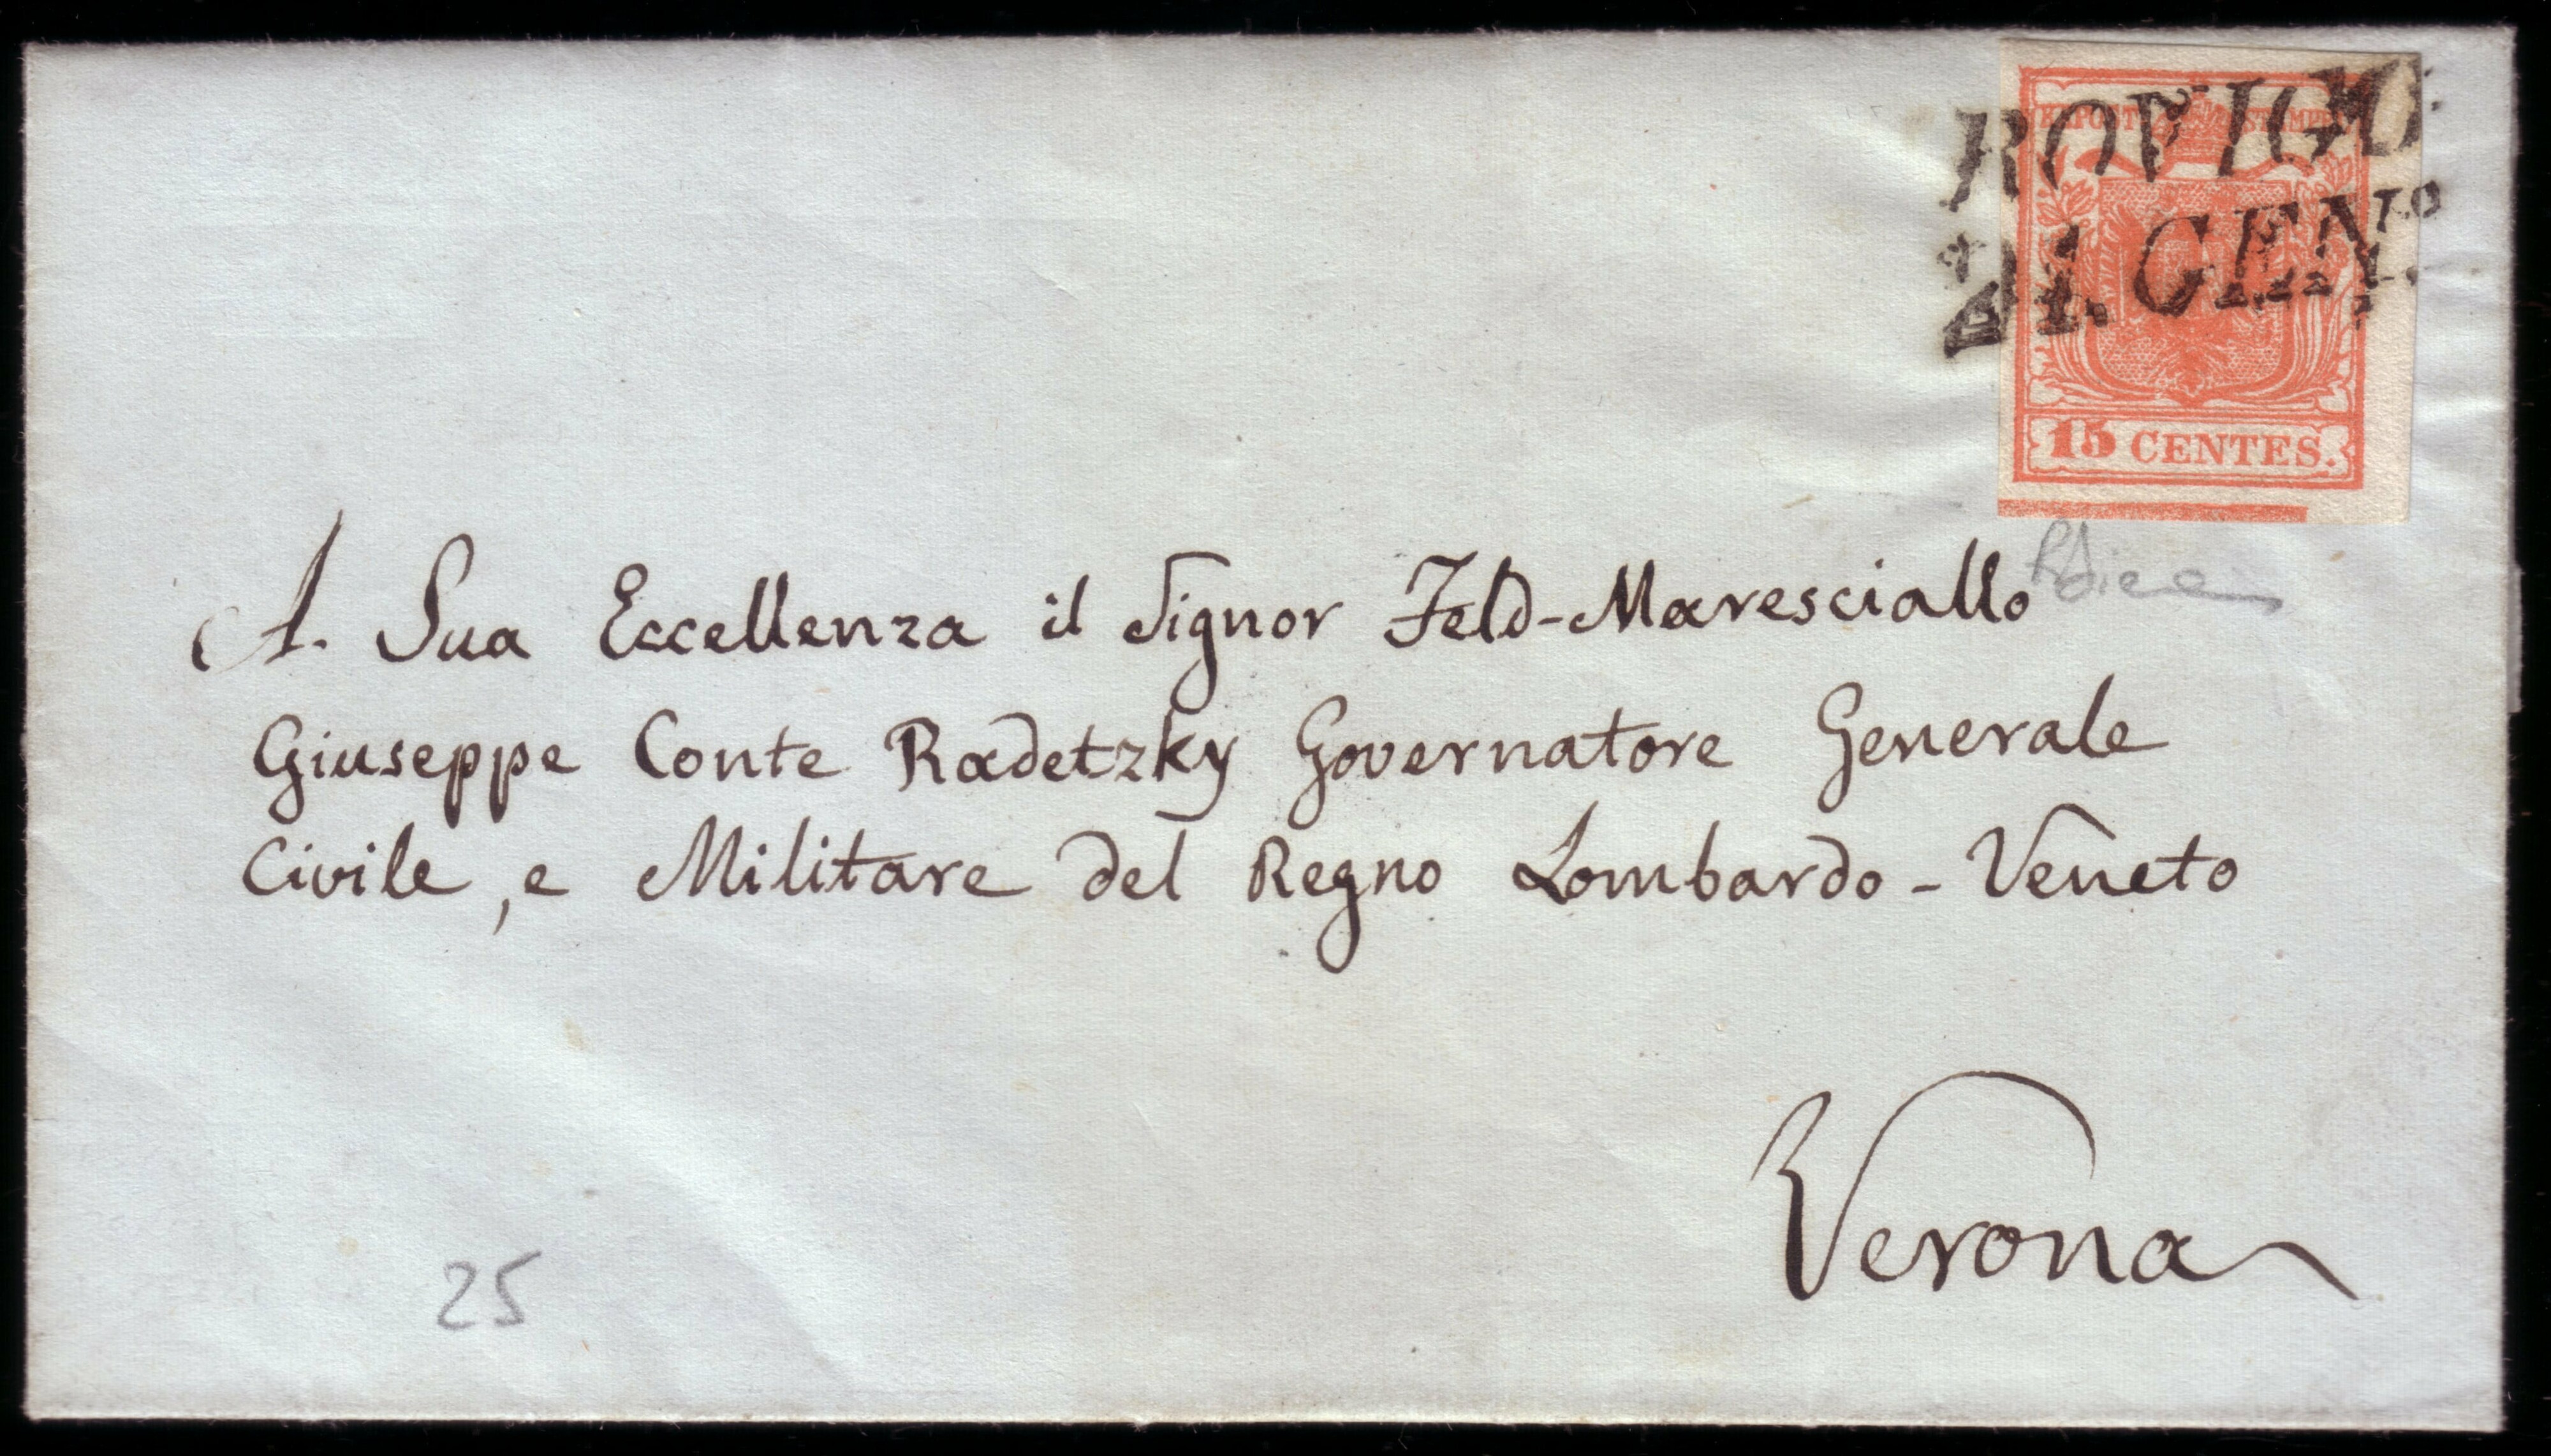 ROVIGO
21. GEN.º
15 CENTES.
A. Sua Eccellenza il Signor Feld-Maresciallo
Giuseppe Conte Radetzky Governatore Generale
Civile, e Militare del Regno Lombardo-Veneto
Verona
25